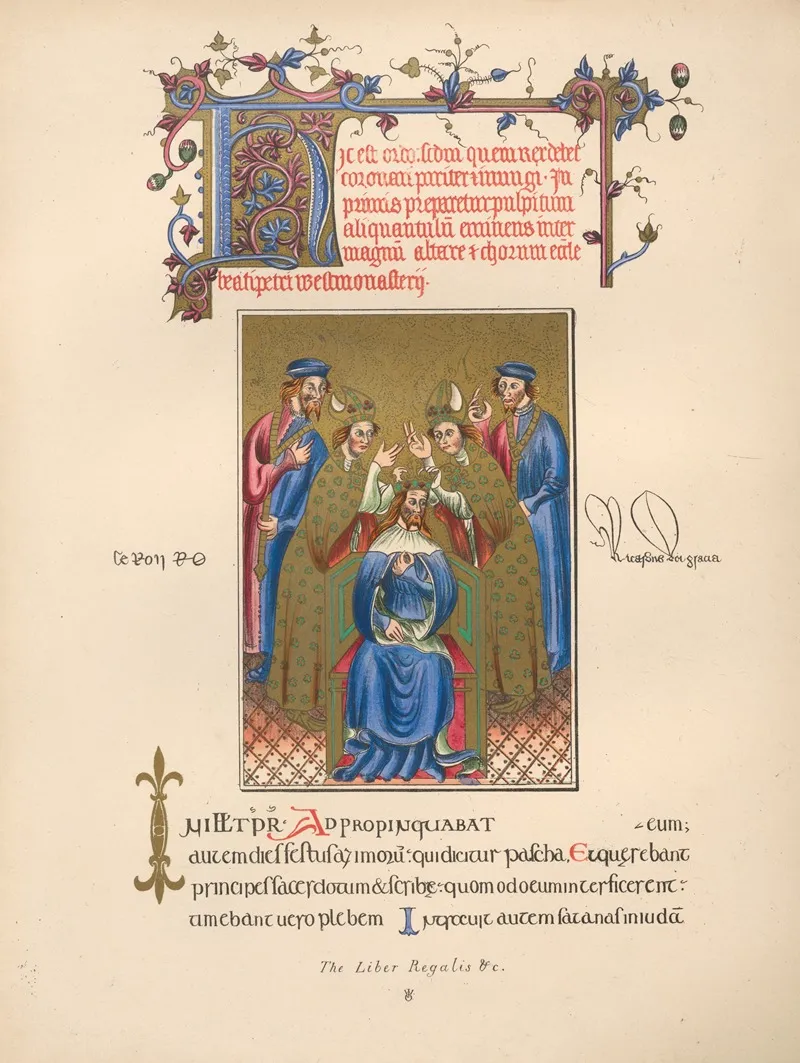 Hic est ordo scdm quem rex debet
coronari pariter & inungi. In
primis preparetur pulpitum
aliquantulū eminens inter
magnū altare & chorum eccle
beati petri westmonasterij.
le Roy R
Ricardus dei gracia
AD PROPINQUABAT eum;
autem dies festus azimorū: qui dicitur pascha, Et querebant
principes sacerdotum & scribę: quomodo eum interficerent:
timebant uero plebem Intrauit autem satanas in iudā
The Liber Regalis &c.